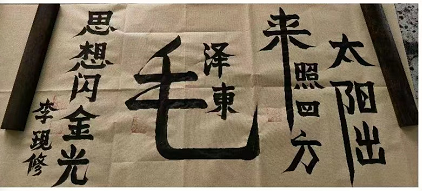 太阳出
来照四方
毛泽東
思想闪金光
李现修